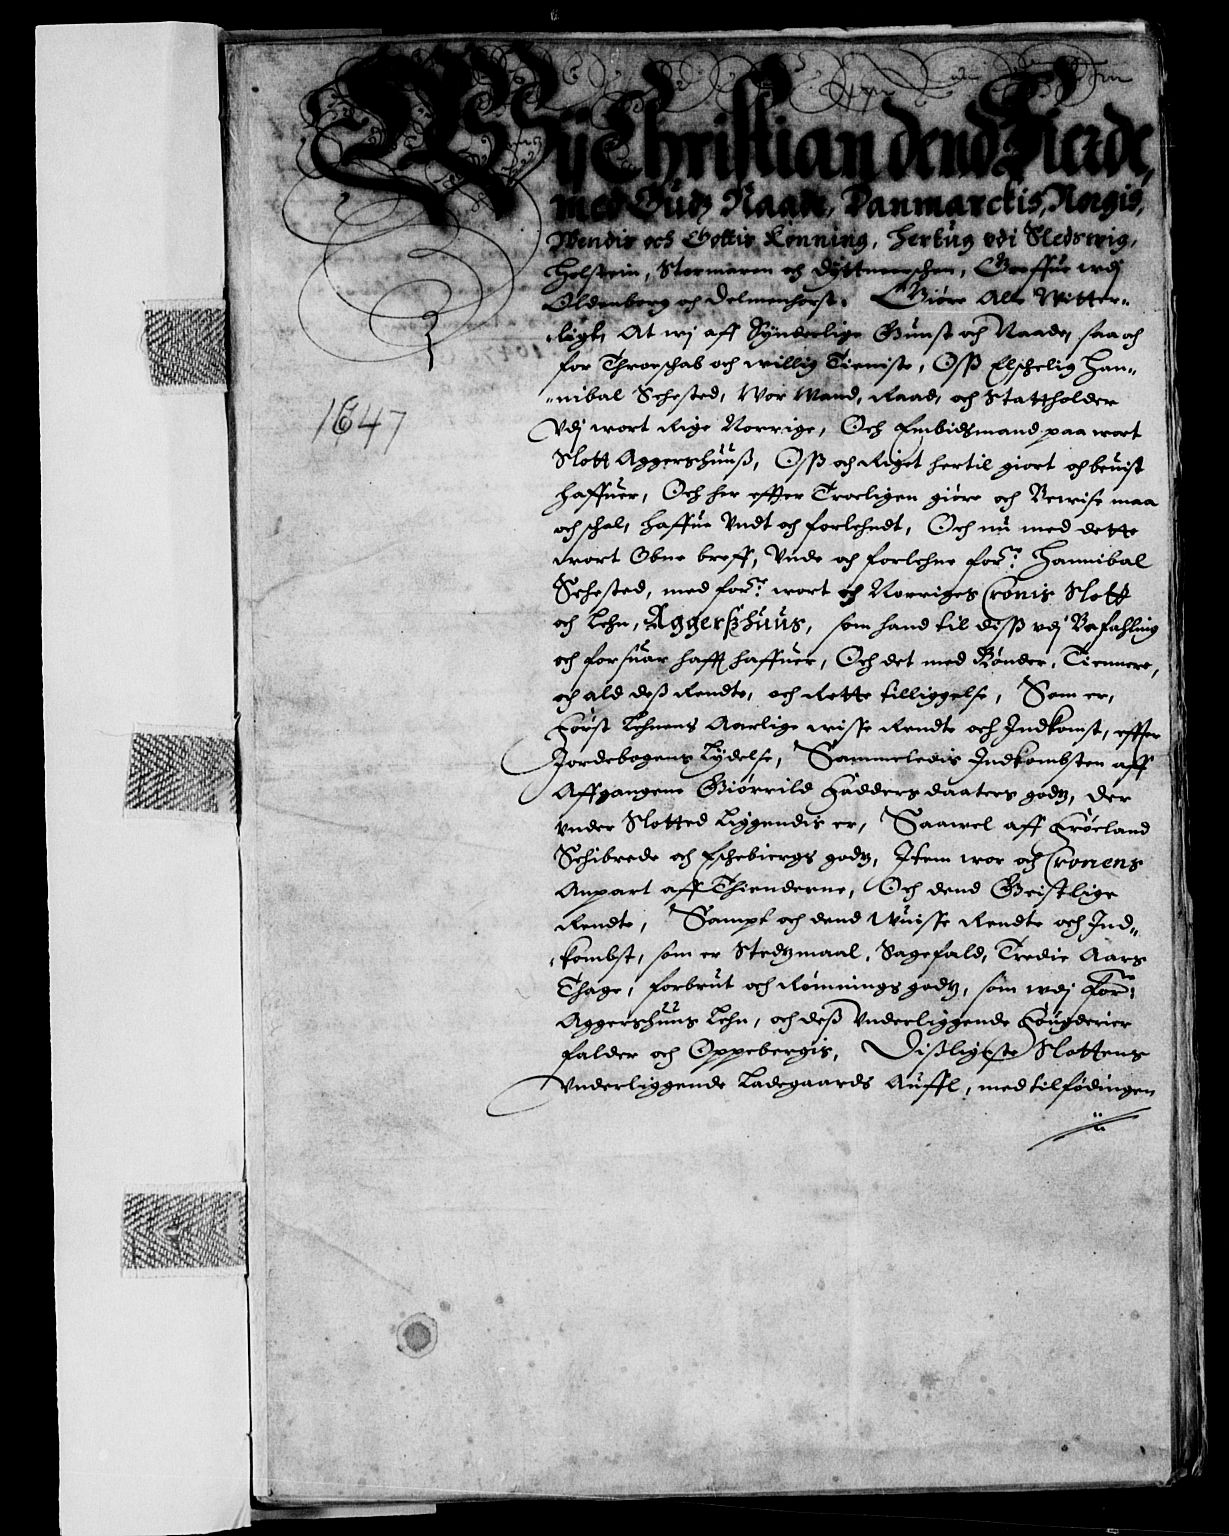 Wij Christian dend Fierde,
med Gudz Naade, Danmarckis, Norgis,
Wendis och Gottis Konning, Hertug vdi Sledswig,
Holstein, Stormaren och Dyttmerschen, Greffue wdj
Oldenborg och Delmenhorst. Giøre Alle Witter-
ligt, At wj aff Synderlige Gunst och Naade, saa och
for Throeschab och willig Tieniste, Oss Elschelig Han-
nibal Sehested, Wor Mand, Raad, och Stattholder
Vdj wort Rige Norrige, Och Embidsmand paa wort
Slott Aggershuuss, Oss och Riget hertil giort och beuist
haffuer, Och her effter Troeligen giøre och Bewise maa
och schal, haffue Vndt och forlehndt, Och nu med dette
wort Obne breff, Vnde och forlehne forne: Hannibal
Sehested, med forne: wort och Norriges Cronis Slott
och Lehn, Aggerszhuus, som hand til diss vdj Befahling
och forsuar hafft haffuer, Och det med Bønder, Tiennere,
och ald dess Rendte, och Rette tilliggelse, Som er,
Først Lehnens Aarlige wisse Rendte och Indkomst, effter
Jordebogens Lydelse, Sammeledis Indkombsten aff
Affgangene Giørrild Fadders daaters godz, der
vnder Slotted Liggendis er, Saawel aff Frøeland
Schibrede och Eschebiergs godz, Item wor och Cronens
Anpart aff Thienderne, Och dend Geistlige
Rendte, Sampt och dend Wuisse Rendte och Ind-
kombst, som er Stedzmaal, Sagefald, Tredie Aars
Thage, forbrut och Rømnings godz, som wdj forne:
Aggershuus Lehn, och dess Vnderliggende Fougderier
falder och Oppebergis, Disligeste Slottens
Vnderliggende Ladegaards Auffl, med tilfødingen
1647